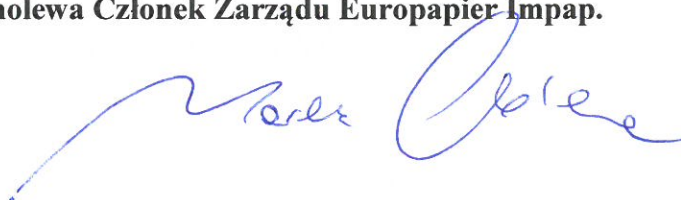 holewa Członek Zarządu Europapier Impap.
Marek